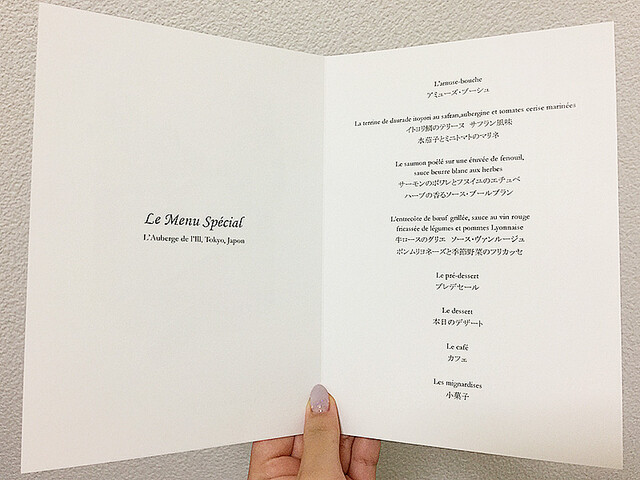 Le Menu Spécial
L'Auberge de l'Ill, Tokyo, Japon
L'amuse-bouche
アミューズ・ブーシュ
La terrine de daurade itoyori au safran,aubergine et tomates cerise marinées
イトヨリ鯛のテリーヌ サフラン風味
水茄子とミニトマトのマリネ
Le saumon poêlé sur une étuvée de fenouil,
sauce beurre blanc aux herbes
サーモンのポワレとフヌイユのエチュベ
ハーブの香るソース・ブールブラン
L'entrecôte de bœuf grillée, sauce au vin rouge
fricassée de légumes et pommes Lyonnaise
牛ロースのグリエ ソース・ヴァンルージュ
ポンムリヨネーズと季節野菜のフリカッセ
Le pré-dessert
プレデセール
Le dessert
本日のデザート
Le café
カフェ
Les mignardises
小菓子